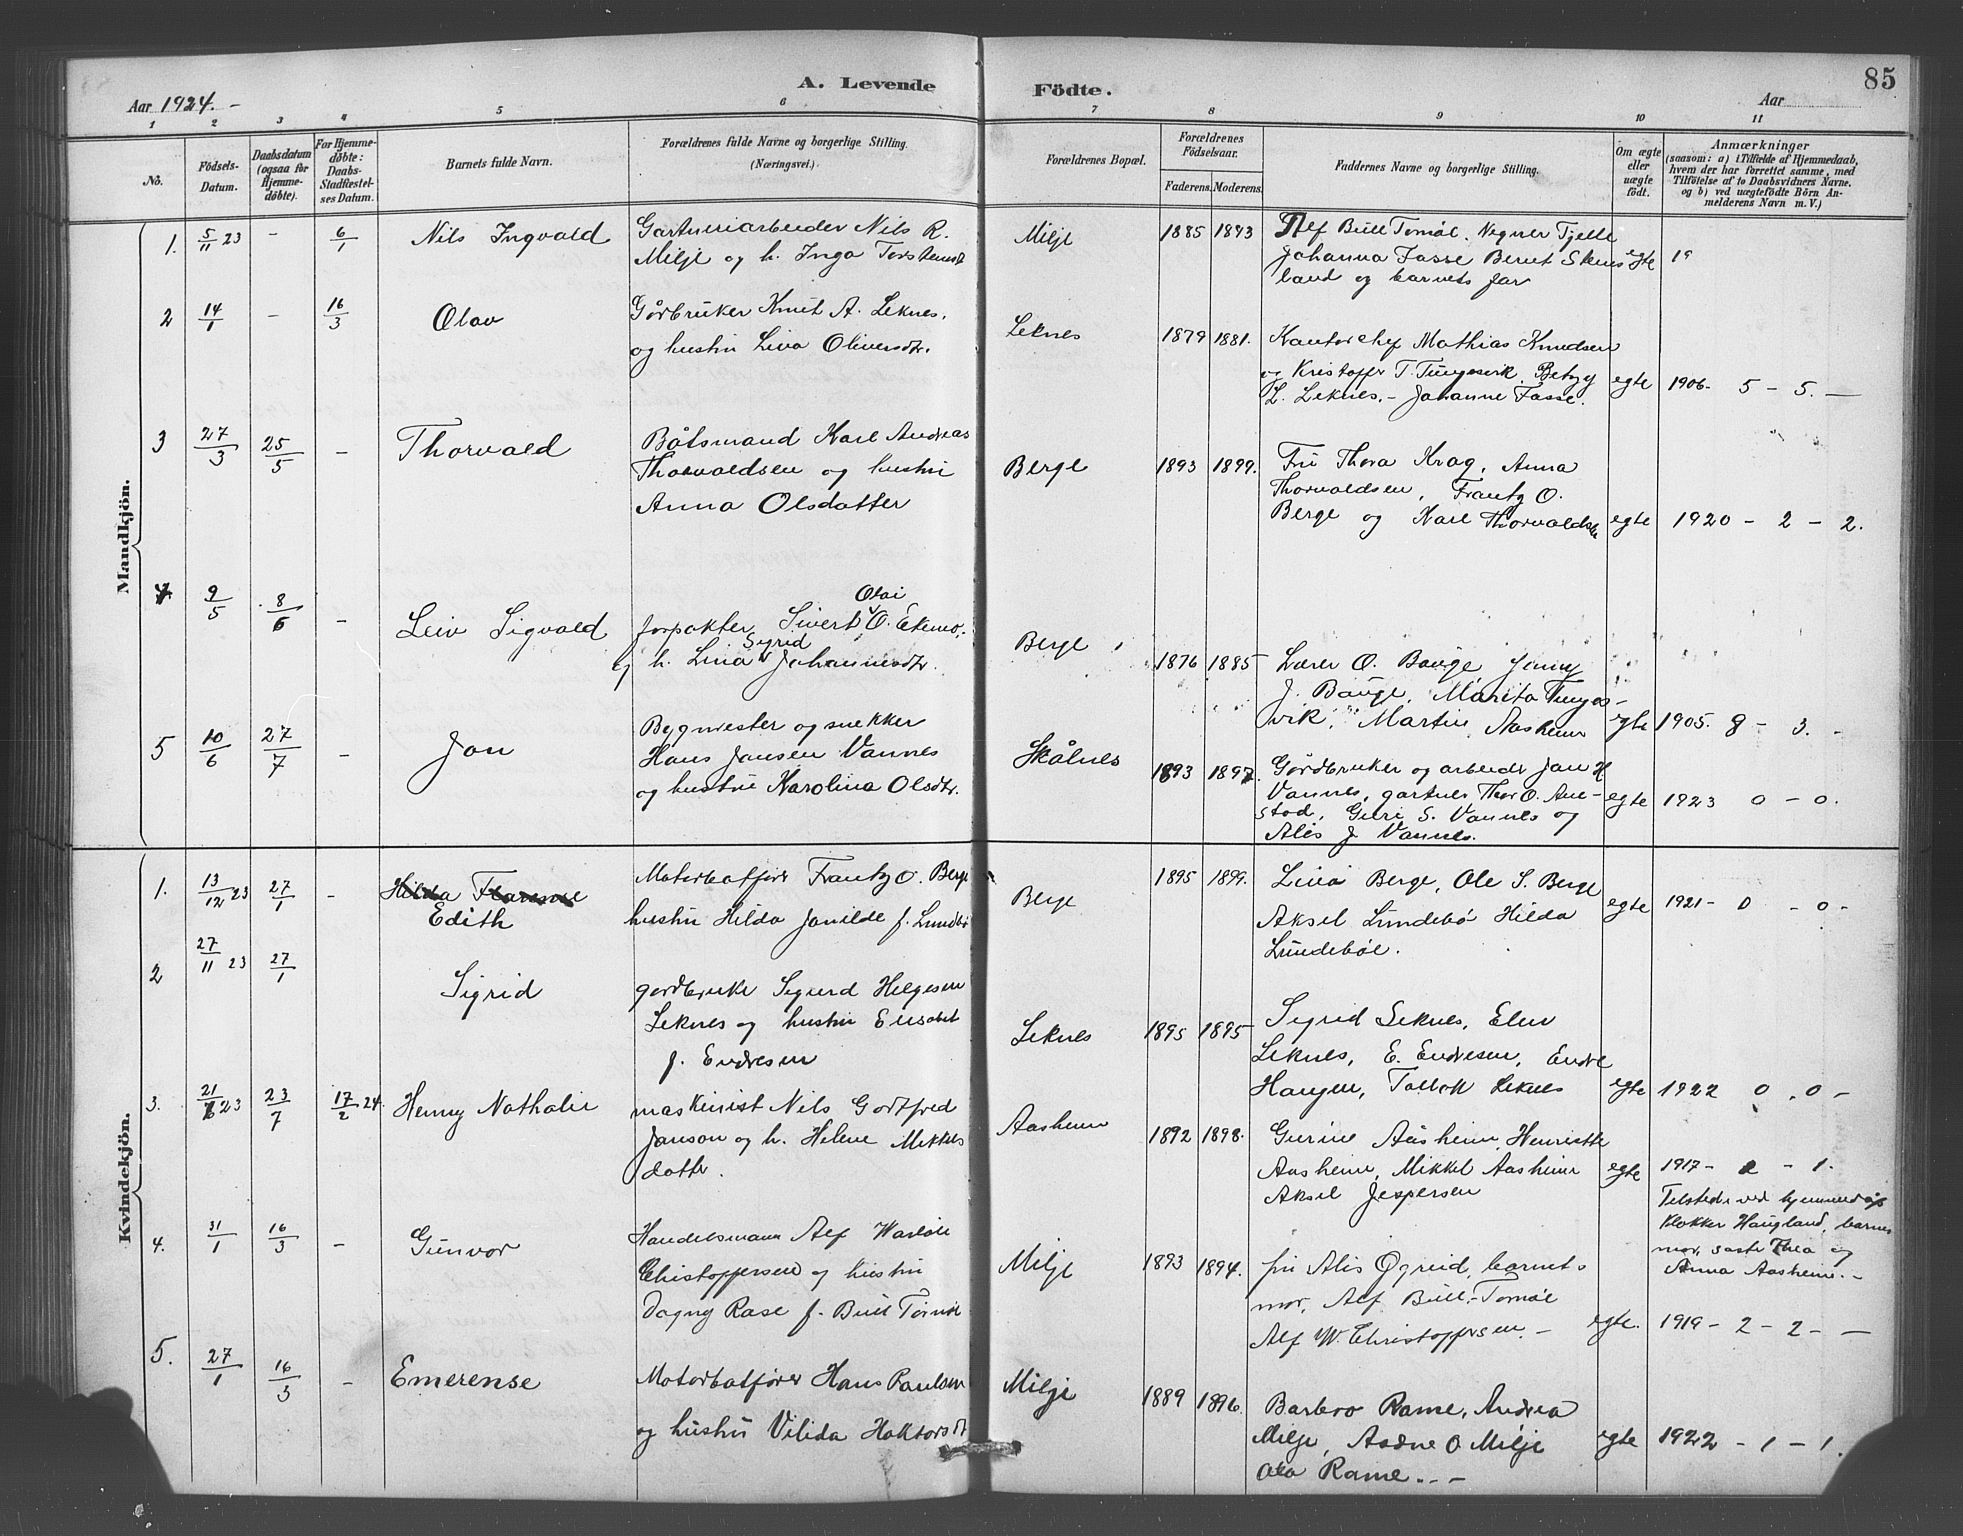 A. Levende Födte. 85
Aar 1924. -
Aar
1 2 3 4 5 6 7 8 9 10 11
No.
Födsels-Datum.
Daabsdatum (ogsaa for Hjemme-döbte).
For Hjemme-döbte: Daabs-Stadfæstel-ses Datum.
Barnets fulde Navn.
Forældrenes fulde Navne og borgerlige Stilling. (Næringsvei.)
Forældrenes Bopæl.
Forældrenes Födselsaar.
Faderens. Moderens.
Faddernes Navne og borgerlige Stilling.
Om ægte eller uægte födt.
Anmærkninger
(saasom: a) i Tilfælde af Hjemmedaab,
hvem der har forrettet samme, med
Tilföielse af to Daabsvidners Navne,
og b) ved uægtefödte Börn An-
melderens Navn m. V.)
Mandkjön.
1. 5/11 23 - 6/1 Nils Ingvald
Gartneriarbeider Nils R.
Milje og h. Inga
Milje 1885 1893
Alf Bull Tornöe. Tjelle
Johanna Fasse Bernt
land og barnets far
egte 19
2 14/1 - 16/3 Olav
Gårbruker Knut A. Leknes.
og hustru Lina Oliversdtr.
Leknes 1879 1881.
Kantorchef Mathias Knudsen
og Kristoffer T. Tungesvik. Betzy
L. Leknes. - Johanne Fasse.
egte 1906. 5 - 5. -
3 27/3 25/5 - Thorvald
Båtsmand Karl Andreas
Thorvaldsen og hustru
Anna Olsdatter
Berge 1893 1899.
Fru Thora Krag, Anna
Thorvaldsen, Frantz O.
Berge og Karl Thorvaldsen
egte 1920 - 2 - 2.
4 9/5 8/6 - Leiv Sigvald
forpakter Sivert Olai O. Ekemo.
og h. Lina Sigrid Johannesdtr.
Berge 1876 1885
Lærer O. Bauge Jenny
J. Bauge, Marita Tunges-
vik, Martin Aasheim
egte 1905. 8 - 3. -
5 10/6 27/7 - Jon
Bygmester og snekker
Hans Jansen Vannes
og hustru Karolina Olsdtr.
Skålnes 1893 1897.
Gårdbruker og arbeider Jon H
Vannes, gartner Thor O. Aue-
stad, Guri S. Vannes og
Alis J. Vannes.
egte 1923 0 - 0.
Kvindekjön.
1. 13/12 23 27/1 - Hilda
Edith
Motorbåtfører Frantz O. Berge
hustru Hilda Janilde f. Lundbö
Berge 1895 1899.
Lina Berge, Ole S. Berge
Aksel Lundebö Hilda
Lundeböe.
egte 1921 - 0 - 0 -
2 27/11 23 27/1 Sigrid
gardbruker Sigurd Helgesen
Leknes og hustru Elisabet
f. Endresen
Leknes 1895 1895
Sigrid Leknes, Elen
Leknes, E. Endresen, Endre
Haugen, Tollak Leknes
egte 1922 0 . 0 -
3. 23 23/7 17/2 24. Henny Nathalie
maskinist Nils Gotfred
Janson og h. Helene Mikkels
datter.
Aasheim 1892 1898.
Gurine Aasheim, Henriette
Aasheim, Mikkel Aasheim
Aksel Jespersen
egte 1917 - 2 - 1.
Tilstede ved hjemmedåp
klokker Haugland, barnets
mor, samt Thea og
Anna Aasheim. -
4. 31/1 16/3 - Gunvor
Handelsmann Alf
Christoffersen og hustru
Dagny Rase f. Bull Tornöe
Milje 1893 1894.
fru Alis Ögreid, barnets
mor, Alf Bull-Tornöe
Alf W. Christoffersen. -
egte. 1919 - 2 - 2 - -
5. 27/1 16/3 - Emerense
Motorbåtfører Hans Paulsen
og hustru Vilida Haktorsdt
Milje 1889 1896.
Barbro Rame, Andrea
Milje, Aadne O Milje
Ola Rame. - -
egte 1922 - 1 - 1.